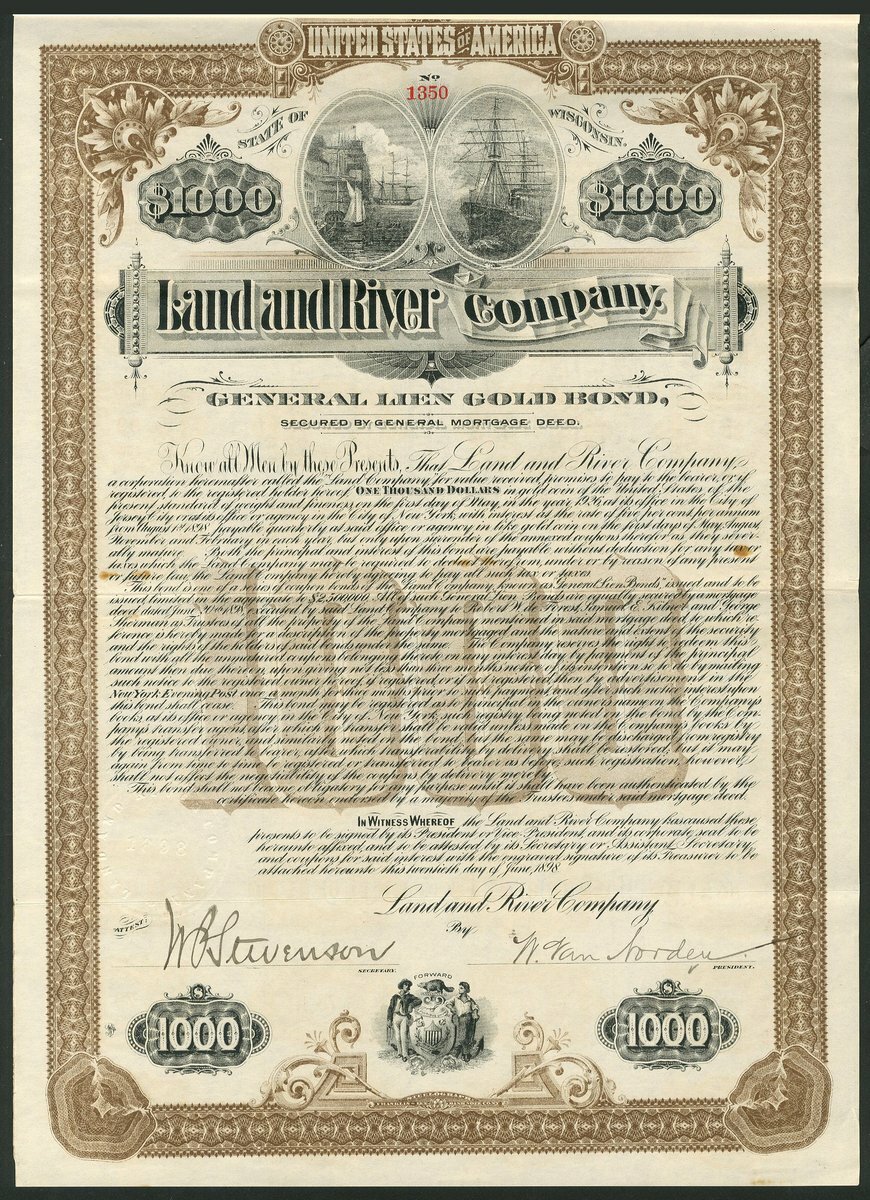 UNITED STATES OF AMERICA
No
1350
STATE OF WISCONSIN.
$1000 $1000
Land and River Company.
GENERAL LIEN GOLD BOND,
SECURED BY GENERAL MORTGAGE DEED.
Know all Men by these Presents, That Land and River Company,
a corporation hereinafter called the "Land Company," for value received, promises to pay to the bearer, or if
registered, to the registered holder hereof, ONE THOUSAND DOLLARS in gold coin of the United States, of the
present standard of weight and fineness, on the first day of May, in the year at its office in the City of
Jersey City, or at its office or agency in the City of New York, with interest at the rate of five per cent. per annum
from August 1st, 1898, payable quarterly at said office or agency in like gold coin on the first days of May, August,
November and February in each year, but only upon surrender of the annexed coupons therefor as they sever-
ally mature. Both the principal and interest of this bond are payable without deduction for any tax or
taxes which the Land Company may be required to deduct therefrom, under or by reason of any present
or future law, the Land Company hereby agreeing to pay all such tax or taxes.
This bond is one of a series of coupon bonds of the Land Company, known as "General Lien Bonds," issued and to be
issued limited in the aggregate to $2,500,000. All of such General Lien Bonds are equally secured by a mortgage
deed dated June 20th, 1898, executed by said Land Company to Robert W. de Forest, Samuel E. Kilner and George
Sherman as Trustees of all the property of the Land Company mentioned in said mortgage deed, to which re-
ference is hereby made for a description of the property mortgaged and the nature and extent of the security
and the rights of the holders of said bonds under the same. The Land Company reserves the right to redeem this
bond with all the unmatured coupons belonging thereto on any interest day by payment of the principal
amount then due thereon upon giving not less than three months notice of its intention so to do by mailing
such notice to the registered owner hereof, if registered, or if not registered then by advertisement in the
New York Evening Post once a month for three months prior to such payment, and after such notice interest upon
this bond shall cease. This bond may be registered as to principal in the owner's name on the Company's
books at its office or agency in the City of New York, such registry being noted on the bond by the Com-
pany's transfer agent, after which no transfer shall be valid unless made on the Company's books by
the registered owner, and similarly noted on the bond, but the same may be discharged from registry
by being transferred to bearer, after which transferability by delivery shall be restored; but it may
again from time to time be registered or transferred to bearer as before, such registration, however,
shall not affect the negotiability of the coupons by delivery merely.
This bond shall not become obligatory for any purpose until it shall have been authenticated by the
certificate hereon endorsed by a majority of the Trustees under said mortgage deed.
IN WITNESS WHEREOF the Land and River Company has caused these
presents to be signed by its President or Vice-President, and its corporate seal to be
hereunto affixed, and to be attested by its Secretary or Assistant Secretary,
and coupons for said interest with the engraved signature of its Treasurer to be
attached hereunto this twentieth day of June, 1898.
Land and River Company
ATTEST: By
W B Stevenson W. Van Norden
SECRETARY. PRESIDENT.
FORWARD
1000 1000